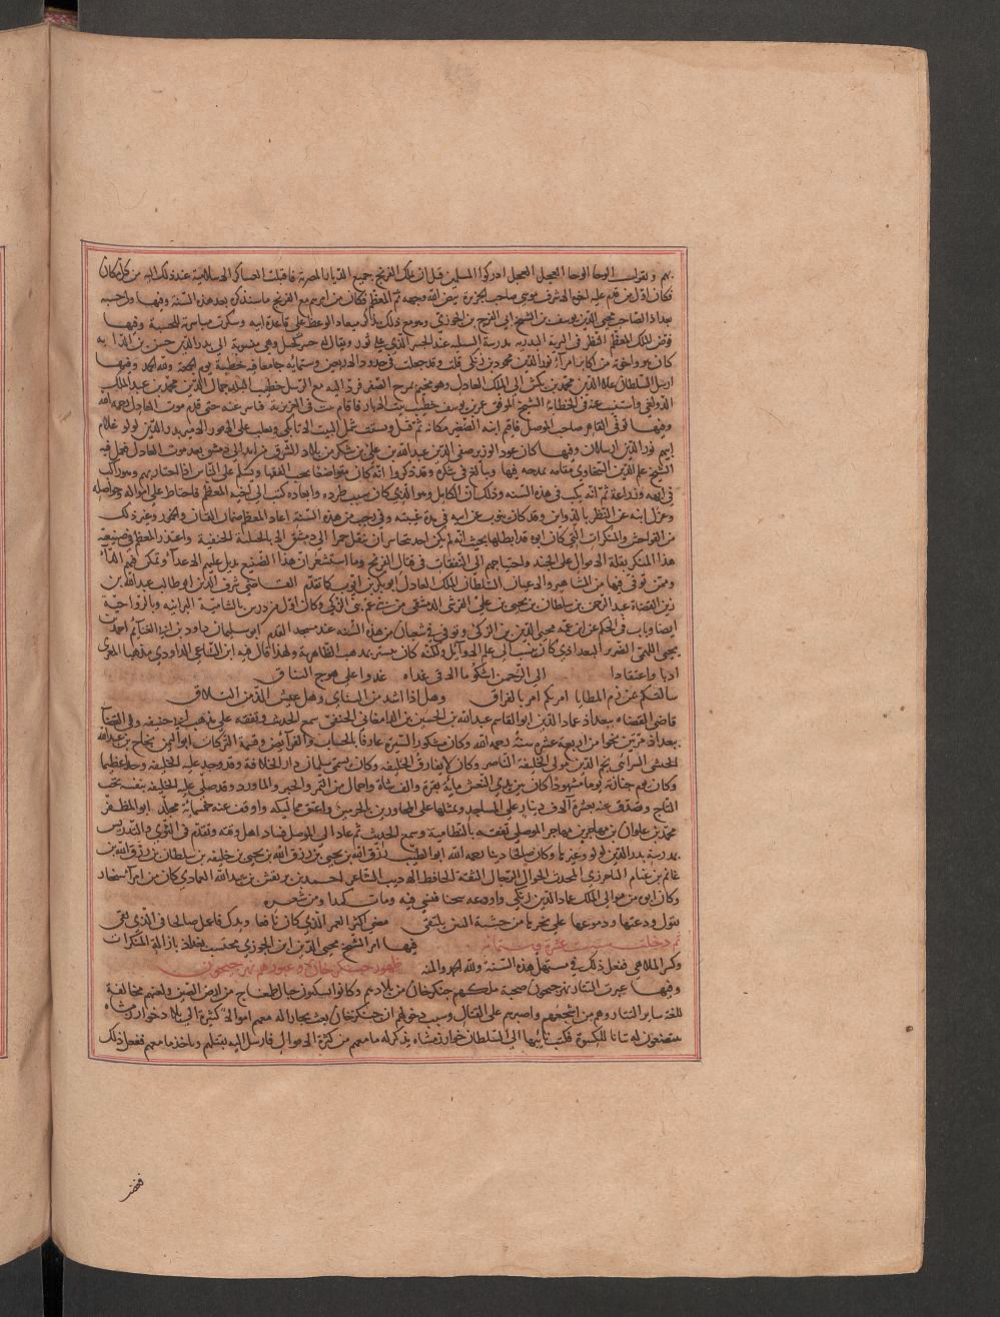 بهم ويقول الوحا الوحا العجل العجل ادركوا المسلمين قبل ان تملك الفرنج جميع الديار المصرية فاقبلت العساكر الاسلامية عند ذلك اليه من كل مكان
فكان اول من قدم عليه اخوه الاشرف موسى صاحب الجزيرة بيض الله وجهه ثم المعظم فكان من امرهم مع الفرنج ما سنذكره بعد هذه السنة وفيها ولي حسبة
بغداد الصاحب محيي الدين يوسف بن الشيخ ابي الفرج بن الجوزي وهو مع ذلك يذكر ميعاد الوعظ على قاعدة ابيه وشكر في مباشرته للحسبة وفيها
فوض للملك المعظم النظر في التربة البدرية مدرسة الشبلية عند الجسر الذي على ثور ويقال له جسر كحيل وهي منسوبة الى بدر الدين حسن بن الداية
كان هو واخوته من اكابر امراء نور الدين محمود بن زنكي قلت وقد جعلت في حدود الاربعين وستمائة جامعا فيه خطبة يوم الجمعة ولله الحمد وفيها
ارسل السلطان علاء الدين محمد بن تكش الى الملك العادل وهو مخيم بمرج الصفر فرد اليه مع الرسل خطيب البلد جمال الدين محمد بن عبد الملك
الدولعي واستنيب عنه في الخطابة الشيخ الموفق عمر بن يوسف خطيب بيت الابار فاقام بت في العزيزية يباشر عنه حتى قدم موت العادل رحمه الله
وفيها توفي القاهر صاحب الموصل فاقيم ابنه الصغير مكانه ثم قتل وتشتت شمل البيت الاتابكي وتغلب على الامور الامير بدر الدين لولو غلام
ابيهم نور الدين ارسلان وفيها كان عود الوزير صفي الدين عبد الله بن علي بن شكر من بلاد الشرق من امد الى دمشق بعد موت العادل فعمل فيه
الشيخ علم الدين السخاوي مقامه يمدحه فيها وبالغ في شكره وقد ذكروا انه كان متواضعا يحب الفقهاء ويسلم على الناس اذا اجتاز بهم وهو راكب
في ابهة وزارته ثم انه نكب في هذه السنة وذلك ان الكامل وهو الذي كان سبب طرده وابعاده كتب الى اخيه المعظم فاحتاط على امواله وحواصله
وعزل ابنه عن النظر بالدواوين وقد كان ينوب عن ابيه في مدة غيبته وفي رجب من هذه السنة اعاد المعظم ضمان القيان والخمور وغير ذلك
من الفواحش والمنكرات التي كان ابوه قد ابطلها بحيث انه لم يكن احد يتجاسر ان ينقل خمرا الى دمشق الا بالحيلة الخفية واعتذر المعظم في صنيعه
هذا المنكر بقلة الاموال على الجند واحتياجهم الى النفقات في قتال الفرنج وما استشعر ان هذا الصنيع يديل عليهم الاعداء ويمكن فيهم الداء
وممن توفي فيها من المشاهير والاعيان السلطان الملك العادل ابو بكر بن ايوب كما تقدم القاضي شرف الدين ابو طالب عبد الله بن
زين القضاة عبد الرحمن بن سلطان بن يحيى بن علي القرشي الدمشقي من بني عم بني الزكي وكان اول من درس بالشامية البرانية وبالرواحية
ايضا وناب في الحكم عن ابن عمه محيي الدين بن الزكي وتوفي في شعبان من هذه السنة عند مسجد القدم ابو سليمان داود بن ابي الغنائم احمد بن
يحيى الملهمي الضرير البغدادي كان ينسب الى علم الاوائل ولكنه كان يتستر بمذهب الظاهرية ولهذا قال فيه ابن الساعي الداودي مذهبا المعري
ادبا واعتقادا الى الرحمن اشكو ما الاقي غداة غدوا على هوج النياق
سالتكم بمن زم المطايا امر بكم امر بالفراق وهل اذا اشد من التنائي وهل عيش الذ من التلاق
قاضي القضاة ببغداد عماد الدين ابو القاسم عبد الله بن الحسين بن الدامغاني الحنفي سمع الحديث وتفقه على مذهب ابي حنيفة وولي القضاء
ببغداد مرتين نحوا من اربعة عشر سنة رحمه الله وكان مشكور السيرة عارفا بالحساب والفرائض وقسمة التركات ابو اليمن نجاح بن عبد الله
الحبشي السوداني نجم الدين مولى الخليفة الناصر وكان لا يفارق الخليفة وكان يسمى سلمان دار الخلافة وقد وجد عليه الخليفة وجدا عظيما
وكان يوم جنازته يوما مشهودا كان بين يدي النعش مائة بقرة والف شاة واحمال من التمر والخبز والماورد وقد صلى عليه الخليفة بنفسه تحت
التاج وتصدق عنه بعشرة الاف دينار على المشاهد ومثلها على المجاورين بالحرمين واعتق مماليكه واوقف عنه خمسمائة مجلد ابو المظفر
محمد بن علوان بن مهاجر بن علي بن مهاجر الموصلي تفقه بالنظامية وسمع الحديث ثم عاد الى الموصل فساد اهل وقته وتقدم في الفتوى والتدريس
بمدرسة بدر الدين لولو وغيرها وكان صالحا دينا رحمه الله ابو الطيب رزق الله بن يحيى بن رزق الله بن يحيى بن خليفة بن سلطان بن رزق الله بن
غانم بن غنام التاخرزي المحدث الجوال الرحال الثقة الحافظ الاديب الشاعر احمد بن برتقش بن عبد الله العمادي كان من امراء سنجار
وكان ابوه من موالي الملك عماد الدين زنكي واودعه سجنا فنسي فيه ومات كمدا ومن شعره
تقول ودعتها ودموعها على نحرها من خشية البين تلتقي مضى اكثر العمر الذي كان نافعا رويدك فاعمل صالحا في الذي بقي
ثم دخلت سنة ست عشرة وستمائة فيها امر الشيخ محيي الدين ابن الجوزي محتسب بغداد بازالة المنكرات
وكسر الملاهي ففعل ذلك في مستهل هذه السنة ولله الحمد والمنة ظهور جنكزخان وعبورهم نهر جيحون
وفيها عبرت التتار نهر جيحون صحبة ملكهم جنكزخان من بلادهم وكانوا يسكنون جبال طمغاج من ارض الصين ولغتهم مخالفة
للغة سائر التتار وهم من اشجعهم واصبرهم على القتال وسبب دخولهم ان جنكزخان بعث تجارا له معهم اموالا كثيرة الى بلاد خوارزمشاه
يستبضعون له ثيابا للكسوة فكتب نائبها الى السلطان خوارزمشاه يذكر له ما معهم من كثرة الاموال فارسل اليه بقتلهم وياخذ ما معهم ففعل ذلك
فغضب